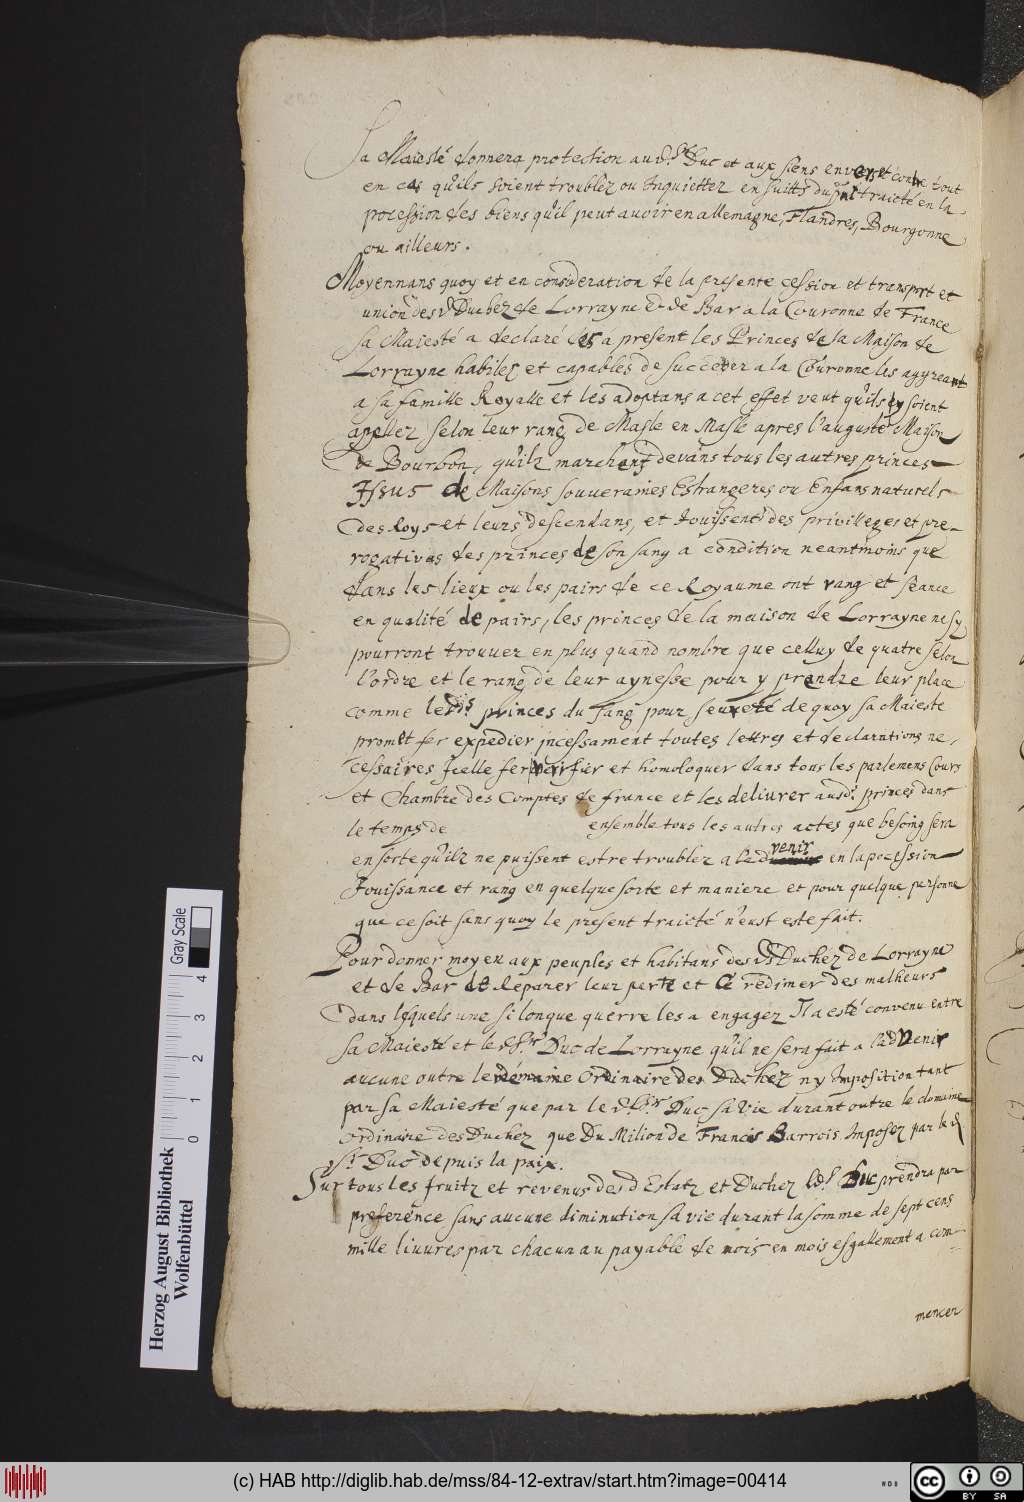 Sa Maiesté donnera protection aud. Sr. Duc et aux siens envers et contre tout
en cas qu'ils soient troublez ou Inquiettez en suitte du pnt traicté en la
pocession des biens qu'il peut avoir en allemagne, Flandres, Bourgonne
ou ailleurs.
Moyennans quoy et en consideration de la presente cession et transport et
union desd. Duchez de Lorrayne et de Bar a la Couronne de France
Sa Maiesté a declaré des a present les Princes de sa Maison de
Lorrayne habiles et capables de succeder a la Couronne les aggreant
a sa famille Royalle et les adoptans a cet effet veut qu'ils y soient
apellez selon leur rang de Masle en Masle apres l'auguste Maison
de Bourbon, qu'ilz marchent devans tous les autres princes
Issus de Maisons souveraines Estrangeres ou Enfans naturels
des Roys et leurs descendans, et Jouissent des privileges et pre-
rogatives des princes de son sang a condition neantmoins que
dans les lieux ou les pairs de ce Royaume ont rang et seance
en qualité de pairs, les princes de la maison de Lorrayne ne sy
pourront trouver en plus quand nombre que celluy de quatre selon
l'ordre et le rang de leur aynesse pour y prendre leur place
comme lesds. princes du sang pour seureté de quoy sa Maieste
promet fer expedier incessament toutes lettres et declarations ne,
cessaires Icelle fer veriffier et homologuer dans tous les parlemens Cours
et Chambre des Comptes de france et les delivrer ausd. princes dans
le temps de ensemble tous les autres actes que besoing sera
en sorte qu'ilz ne puissent estre troublez a lad venir en la pocession
Jouissance et rang en quelque sorte et maniere et pour quelque personne
que ce soit sans quoy le present traicté n'eust este fait.
Pour donner moyen aux peuples et habitans desds. Duchez de Lorrayne
et de Bar de Reparer leur perte et Ce redimer des malheurs
dans lesquels une si longue guerre les a engagez Il a esté convenu entre
Sa Maiesté et led. Sr. Duc de Lorrayne qu'il ne sera fait a l'advenir
aucune outre le démaine Ordinaire des Duchez ny Imposition tant
par sa Maiesté que par le d. Sr. Duc sa vie durant outre le domaine
Ordinaire des Duchez que Du Milion de Francs Barrois Imposez par le d.
Sr. Duc depuis la paix.
Sur tous les fruitz et revenus desd Estatz et Duchez led. Sr. Duc prendra par
preference sans aucune diminution sa vie durant la somme de sept cens
mille livures par chacun an payable de mois en mois esgallement a com-
mencer
Herzog August Bibliothek
Wolfenbüttel
0 1 2 3 4
Gray Scale
(c) HAB http://diglib.hab.de/mss/84-12-extrav/start.htm?image=00414
WDB
cc BY SA